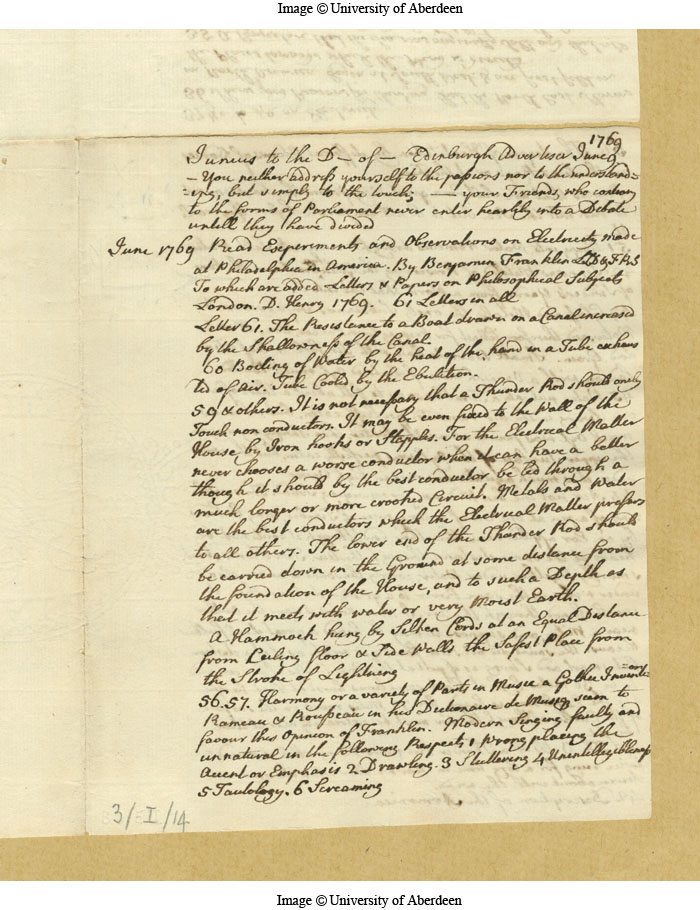 Image © University of Aberdeen
1769
Junius to the D— of — Edinburgh Advertiser June 9
— You neither address yourself to the passions nor to the understand=
=ing, but simply to the touch; — your Friends, who
to the forms of Parliament never enter heartily into a Debate
untill they have divided
June 1769 Read Experiments and Observations on Electricity made
at Philadelphia in America. By Benjamin Franklin LLD & F.R.S
To which are added Letters & Papers on Philosophical Subjects
London. D. Henry 1769. 61 Letters in all
Letter 61. The Resistence to a Boat drawn on a Canal increased
by the Shallowness of the Canal.
60 Boiling of Water by the heat of the hand in a Tube exhaus
ted of air. Tube Cooled by the Ebulition.
59 & others. It is not necessary that a Thunder Rod should only
Touch non conductors. It may be even fixed to the Wall of the
House by Iron hooks or Stapples. For the Electrical Matter
never chooses a worse conductor when it can have a better
though it should by the best conductor be led through a
much longer or more crooked Circuit. Metals and Water
are the best conductors which the Electrical Matter prefers
to all others. The lower end of the Thunder Rod should
be carried down in the Ground at some distance from
the foundation of the House, and to such a Depth as
that it meets with water or very Moist Earth.
A Hammock hung by Silken Cords at an Equal Distance
from Ceiling floor & Side Walls the Safest Place from
the Stroke of Lightning
56.57. Harmony or a variety of Parts in Music a Gothic Invention
Rameau & Rousseau in his Dictionaire de Musiq seem to
favour this Opinion of Franklin. Modern Singing faulty and
unnatural in the following Respects 1 Wrong placing the
Accent or Emphasis 2 Drawling. 3 Stuttering 4 Unintelligibleness
5 Tautology. 6 Screaming
3/I/14
Image © University of Aberdeen